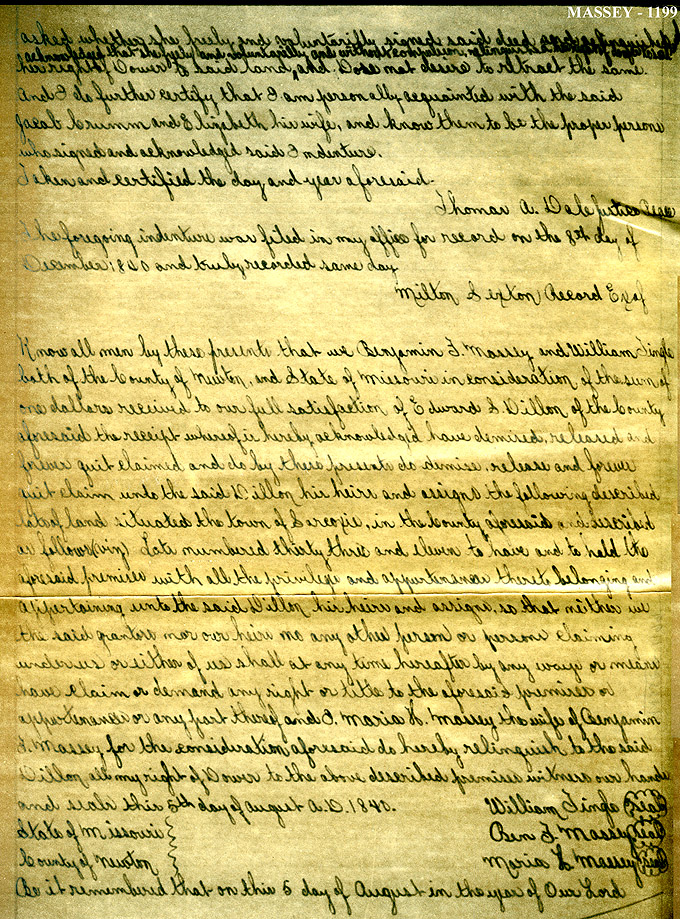 MASSEY - 1199
asked whether she freely and voluntarily signed said deed
acknowledged that she freely and voluntarily and without compulsion, relinquish
her right of Dower to said land, and Dose not desire to retract the same.
And I do further certify that I am personally acquainted with the said
Jacob Crumm and Elizabeth his wife, and know them to be the proper persons
who signed and acknowledged said Indenture.
Taken and certified the day and year aforesaid.
Thomas A. Dale Justice Peace
The foregoing indenture was filed in my office for record on the 8th day of
December 1840 and truly recorded same day
Milton Sexton Record
Know all men by these presents that we Benjamin F. Massey and William Tingle
both of the County of Newton, and State of Missouri in consideration of the sum of
one dollars received to our full satisfaction of Edward S Dillon of the County
aforesaid the receipt whereof is hereby acknowledg'd have demised, released and
forever quit claimed and do by these presents do demise, release and forever
quit claim unto the said Dillon his heirs and assigns the following described
lots of land situated the town of Sarcoxie, in the County aforesaid and described
as follows (viz) Lots numbered thirty three and eleven to have and to hold the
aforesaid premises with all the privileges and appurtenences thereto belonging and
appertaining unto the said Dillon his heirs and assigns, so that neither we
the said grantors nor our heirs no any other person or persons claiming
under us or either of us shall at any time hereafter by any ways or means
have claim or demand any right or title to the aforesaid premises or
appurtenences or any part thereof, and I. Maria K. Massey the wife of Benjamin
F. Massey for the consideration aforesaid do hereby relinquish to the said
Dillon all my right of Dower to the above described premises witness our hands
and seals this 5th day of August A.D. 1840. William Tingle Seal
State of Missouri Ben F Massey Seal
County of Newton Maria K Massey Seal
Be it remembered that on this 5 day of August in the year of Our Lord